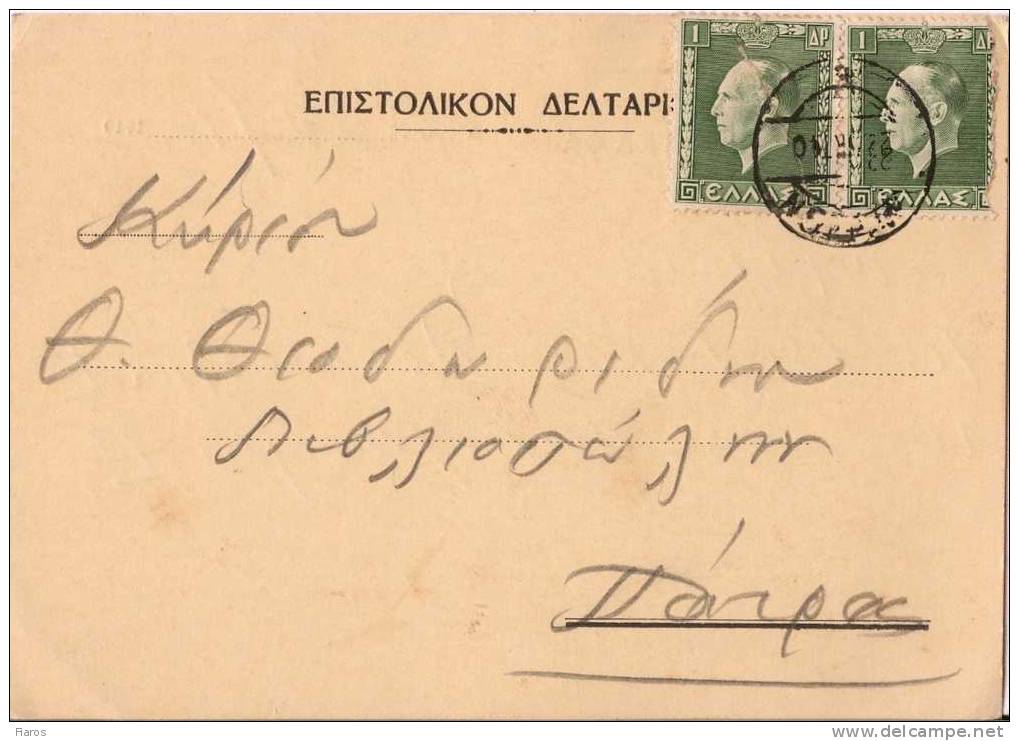 1 ΔΡ 1 ΔΡ
ΕΠΙΣΤΟΛΙΚΟΝ ΔΕΛΤΑΡΙ
ΕΛΛΑΣ ΕΛΛΑΣ
Κύριον
Θ. Θεοδωρίδην
Βιβλιοπώλην
Πάτρας
flaros
delcampe.net